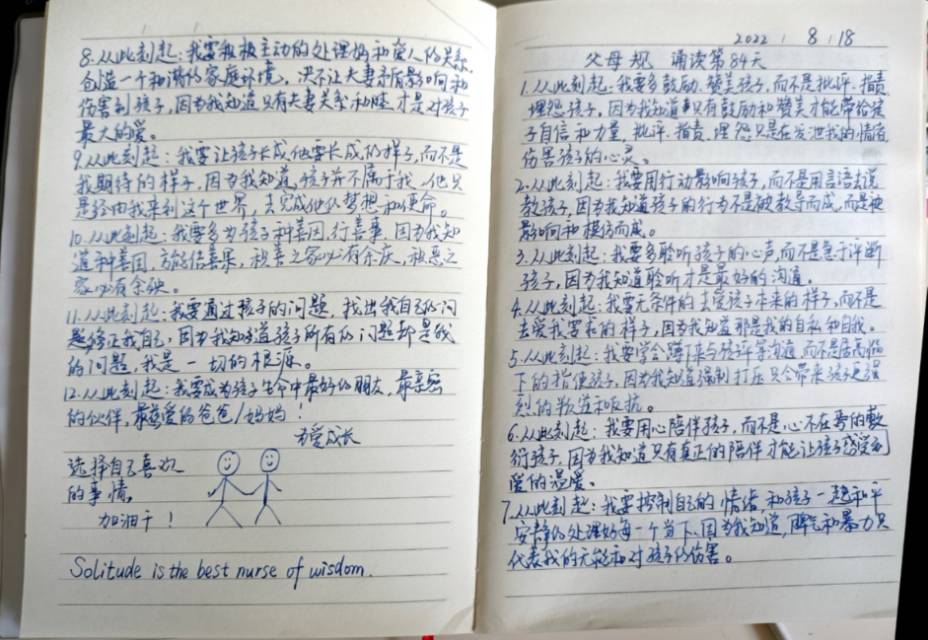 8.从此刻起:我要积极主动的处理好和爱人的关系,
创造一个和谐的家庭环境,决不让夫妻矛盾影响和
伤害到孩子,因为我知道只有夫妻关系和睦才是对孩子
最大的爱。
9.从此刻起:我要让孩子长成他要长成的样子,而不是
我期待的样子,因为我知道,孩子并不属于我,他只
是经由我来到这个世界,去完成他的梦想和使命。
10.从此刻起:我要多为孩子种善因,行善事,因为我知
道种善因,方能结善果,积善之家必有余庆,积恶之
家必有余殃。
11.从此刻起:我要通过孩子的问题,找出我自己的问
题修正我自己,因为我知道孩子所有的问题都是我
的问题,我是一切的根源。
12.从此刻起:我要成为孩子生命中最好的朋友,最亲密
的伙伴,最慈爱的爸爸/妈妈!
为爱成长
选择自己喜欢
的事情,
加油干!
Solitude is the best nurse of wisdom.
2022 8 18
父母规 诵读第84天
1.从此刻起:我要多鼓励,赞美孩子,而不是批评、指责
埋怨孩子,因为我知道只有鼓励和赞美才能带给孩
子自信和力量,批评、指责、埋怨只是在发泄我的情绪
伤害孩子的心灵。
2.从此刻起:我要用行动影响孩子,而不是用言语去说
教孩子,因为我知道孩子的行为不是被教导而成,而是被
影响和模仿而成。
3.从此刻起:我要多聆听孩子的心声,而不是急于评断
孩子,因为我知道聆听才是最好的沟通。
4.从此刻起:我要无条件的去爱孩子本来的样子,而不是
去爱我要求的样子,因为我知道那是我的自私和自我。
5.从此刻起:我要学会蹲下来与孩子平等沟通,而不是居高临
下的指使孩子,因为我知道强制打压只会带来孩子更强
烈的叛逆和反抗。
6.从此刻起:我要用心陪伴孩子,而不是心不在焉的敷
衍孩子,因为我知道只有真正的陪伴才能让孩子感受到
爱的温暖。
7.从此刻起:我要控制自己的情绪,和孩子一起和平
安静的处理好每一个当下,因为我知道,脾气和暴力只
代表我的无能和对孩子的伤害。